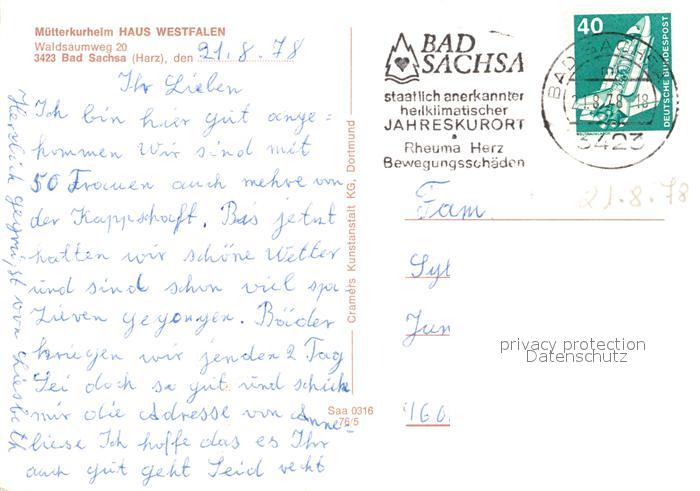 Mütterkurheim HAUS WESTFALEN
Waldsaumweg 20
3423 Bad Sachsa (Harz), den 21.8.78
Ihr Lieben
Ich bin hier gut ange=
kommen Wir sind mit
50 Frauen auch mehre von
der Kappschaft. Bis jetzt
hatten wir schöne Wetter
und sind schon viel spa
zieren gegangen. Bäider
kriegen wir jenden 2 Tag
Sei doch so gut und schick
mir die Adresse von Anne-
liese Ich hoffe das es Ihr
auch gut geht Seid recht
Herzlich gegrüßt von Liesbeth
Cramers Kunstanstalt KG, Dortmund
Saa 0316
76/5
BAD
SACHSA
staatlich anerkannter
heilklimatischer
JAHRESKURORT
Rheuma Herz
Bewegungsschäden
40
DEUTSCHE BUNDESPOST
BAD SACHSA
21.8.78-18
3423
21.8.78
Fam.
Syl
Jun
460
privacy protection
Datenschutz